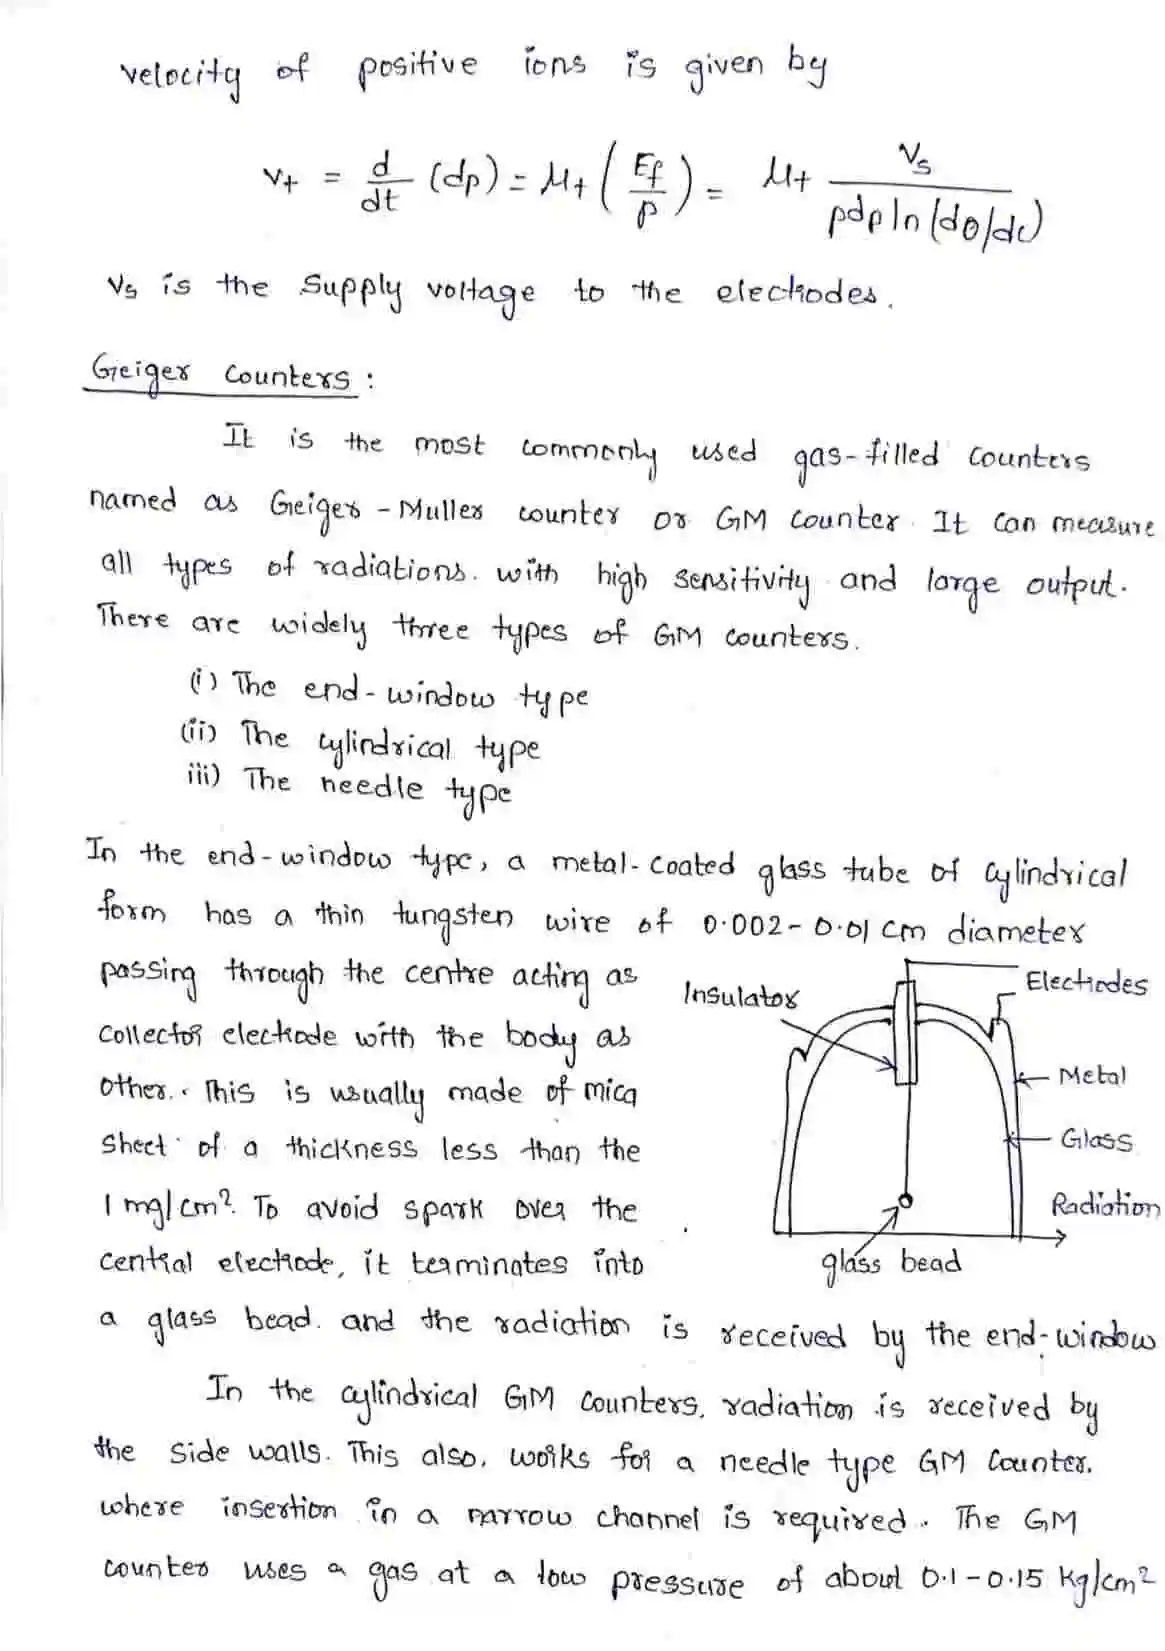 velocity of positive ions is given by
v+ = d/dt (dp) = μ+ (Ef/p) = μ+ Vs / pdp ln (do/dc)
Vs is the supply voltage to the electrodes.
Geiger Counters :
It is the most commonly used gas-filled counters
named as Geiger - Muller counter or GM counter. It can measure
all types of radiations. with high sensitivity and large output.
There are widely three types of GM counters.
(i) The end-window type
(ii) The cylindrical type
iii) The needle type
In the end-window type, a metal-coated glass tube of cylindrical
form has a thin tungsten wire of 0.002-0.01 cm diameter
passing through the centre acting as
collector electrode with the body as
other. This is usually made of mica
sheet of a thickness less than the
1 mg/cm². To avoid spark over the
central electrode, it terminates into
a glass bead. and the radiation is received by the end-window
Insulator
Electrodes
Metal
Glass
Radiation
glass bead
In the cylindrical GM counters, radiation is received by
the side walls. This also, works for a needle type GM Counter.
where insertion in a narrow channel is required. The GM
counter uses a gas at a low pressure of about 0.1-0.15 Kg/cm²